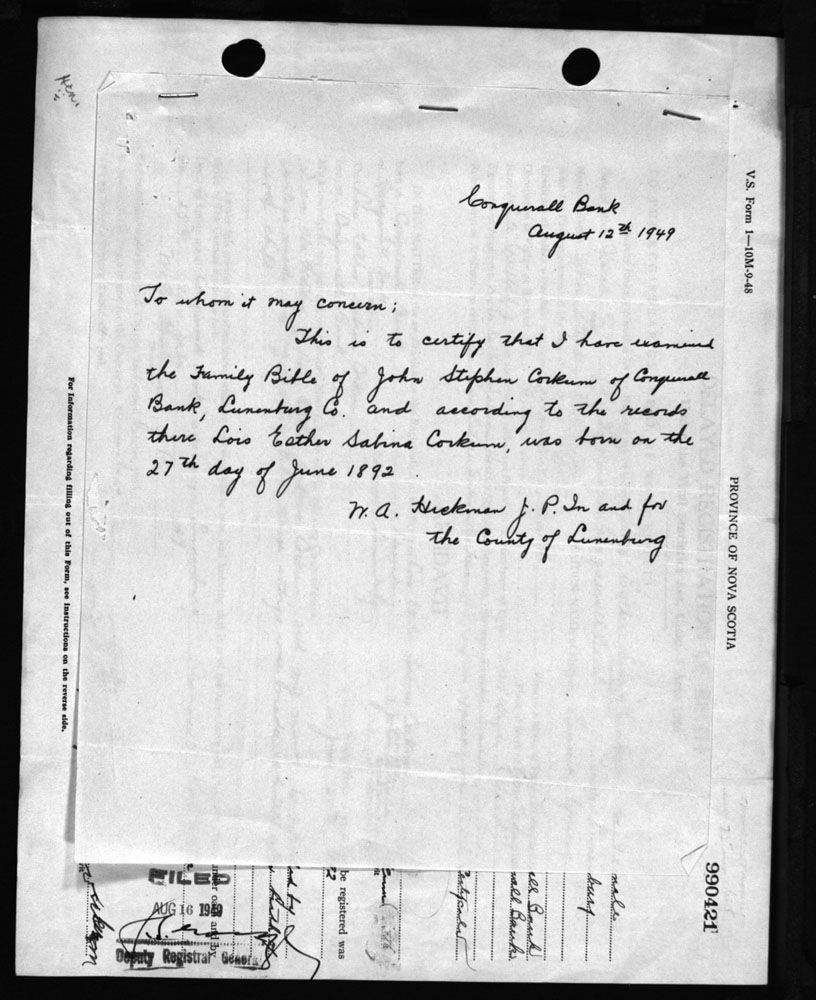 Conquerall Bank
August 12th 1949
To whom it may concern;
This is to certify that I have examined
the Family Bible of John Stephen Corkum of Conquerall
Bank, Lunenburg Co. and according to the records
there Lois Esther Sabina Corkum, was born on the
27th day of June 1892.
W. A. Hickman J. P. In and for
the County of Lunenburg
V.S. Form 1—10M-9-48
PROVINCE OF NOVA SCOTIA
990421
For Information regarding filling out of this Form, see Instructions on the reverse side.
be registered was
FILED
AUG 16 1949
Deputy Registrar General